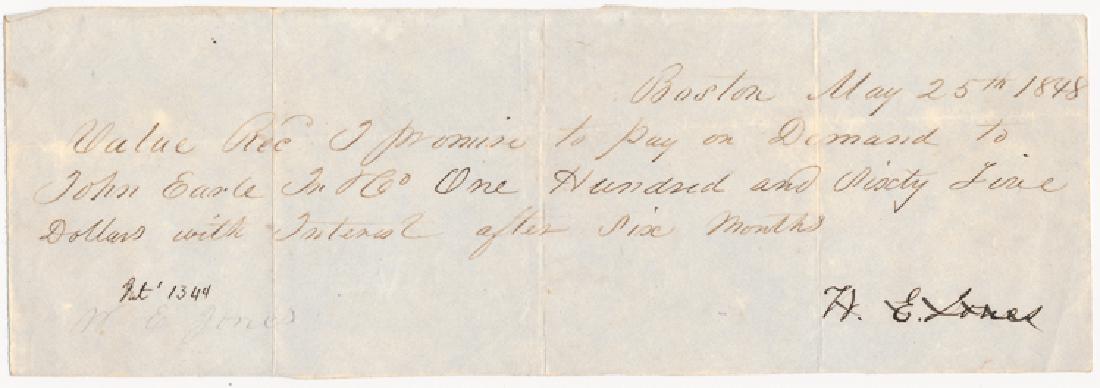 Boston May 25th 1848
Value Rec I promise to pay on Demand to
John Earle Jr & Co One Hundred and Sixty Five
Dollars with Interest after Six Months
Int' 1344
H. E. Jones
W E Jones